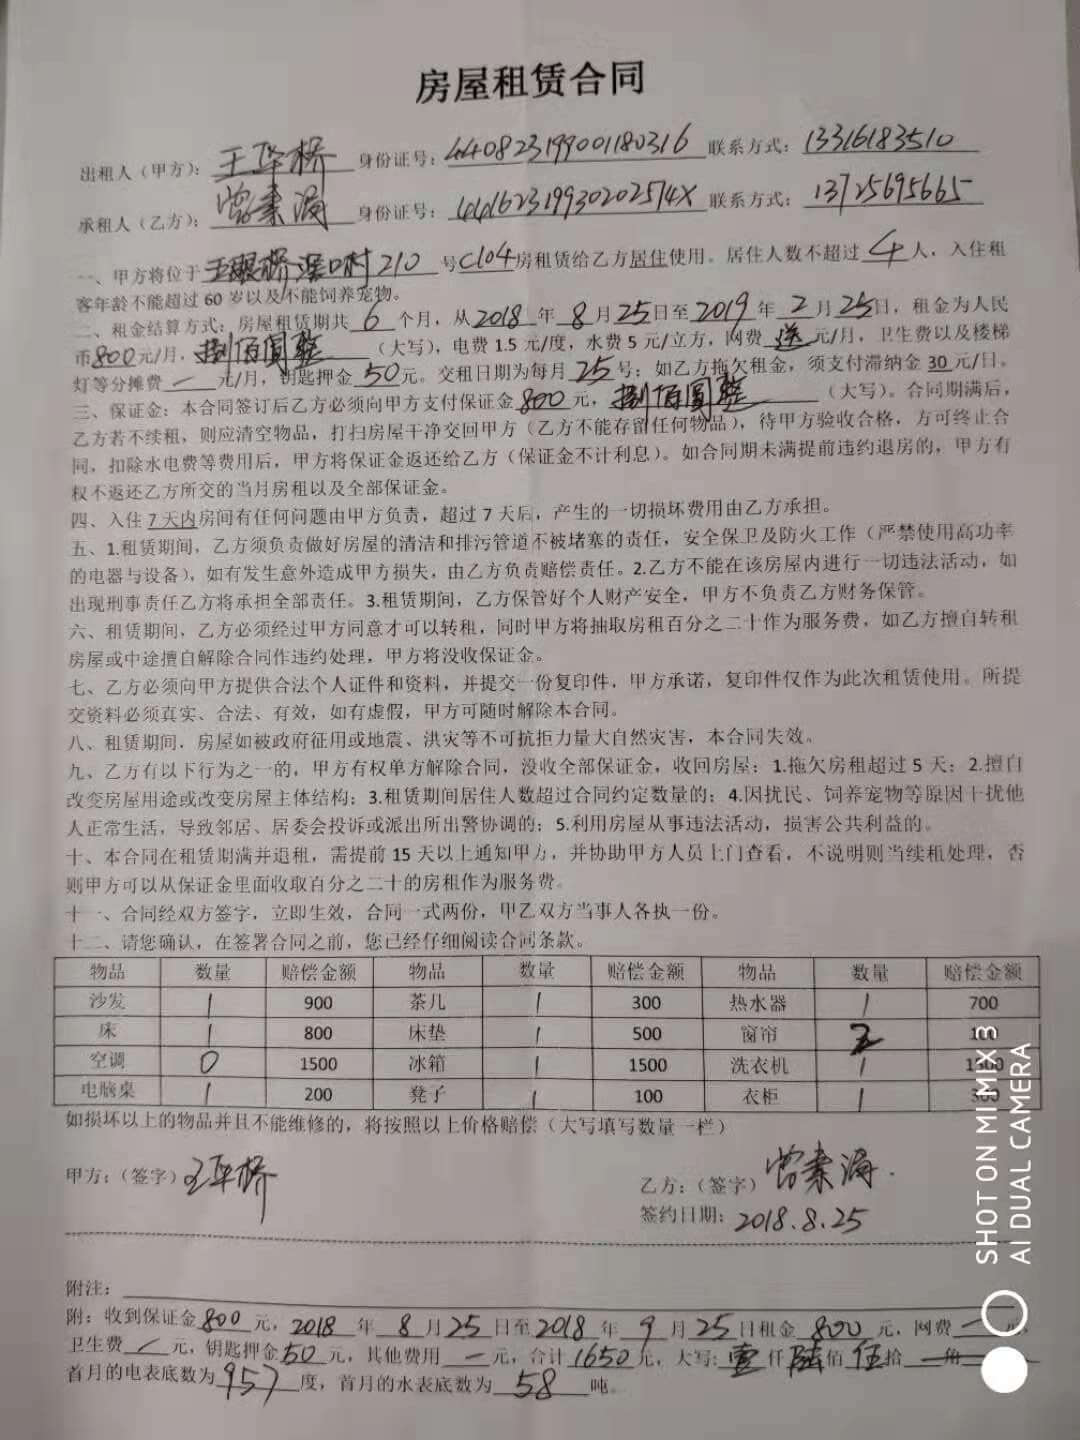 房屋租赁合同
出租人（甲方）：王华桥 身份证号：440823199001180316 联系方式：13316183510
承租人（乙方）：曾秉海 身份证号：44162319930202574X 联系方式：13725695665
一、甲方将位于 210 号C104房租赁给乙方居住使用。居住人数不超过 4 人，入住租
客年龄不能超过 60 岁以及不能饲养宠物。
二、租金结算方式：房屋租赁期共 6 个月，从2018 年 8 月25日至2019 年 2 月25日，租金为人民
币800元/月，捌佰圆整（大写），电费 1.5 元/度，水费 5 元/立方，网费 送 元/月，卫生费以及楼梯
灯等分摊费 一 元/月，钥匙押金 50元。交租日期为每月 25号；如乙方拖欠租金，须支付滞纳金 30 元/日。
三、保证金：本合同签订后乙方必须向甲方支付保证金 800 元，捌佰圆整（大写）。合同期满后，
乙方若不续租，则应清空物品，打扫房屋干净交回甲方（乙方不能存留任何物品），待甲方验收合格，方可终止合
同，扣除水电费等费用后，甲方将保证金返还给乙方（保证金不计利息）。如合同期未满提前违约退房的，甲方有
权不返还乙方所交的当月房租以及全部保证金。
四、入住 7 天内房间有任何问题由甲方负责，超过 7 天后，产生的一切损坏费用由乙方承担。
五、1.租赁期间，乙方须负责做好房屋的清洁和排污管道不被堵塞的责任，安全保卫及防火工作（严禁使用高功率
的电器与设备），如有发生意外造成甲方损失，由乙方负责赔偿责任。2.乙方不能在该房屋内进行一切违法活动，如
出现刑事责任乙方将承担全部责任。3.租赁期间，乙方保管好个人财产安全，甲方不负责乙方财务保管。
六、租赁期间，乙方必须经过甲方同意才可以转租，同时甲方将抽取房租百分之二十作为服务费，如乙方擅自转租
房屋或中途擅自解除合同作违约处理，甲方将没收保证金。
七、乙方必须向甲方提供合法个人证件和资料，并提交一份复印件，甲方承诺，复印件仅作为此次租赁使用。所提
交资料必须真实、合法、有效，如有虚假，甲方可随时解除本合同。
八、租赁期间，房屋如被政府征用或地震、洪灾等不可抗拒力量大自然灾害，本合同失效。
九、乙方有以下行为之一的，甲方有权单方解除合同，没收全部保证金，收回房屋：1.拖欠房租超过 5 天；2.擅自
改变房屋用途或改变房屋主体结构；3.租赁期间居住人数超过合同约定数量的；4.因扰民、饲养宠物等原因干扰他
人正常生活，导致邻居、居委会投诉或派出所出警协调的；5.利用房屋从事违法活动，损害公共利益的。
十、本合同在租赁期满并退租，需提前 15 天以上通知甲方，并协助甲方人员上门查看，不说明则当续租处理，否
则甲方可以从保证金里面收取百分之二十的房租作为服务费。
十一、合同经双方签字，立即生效，合同一式两份，甲乙双方当事人各执一份。
十二、请您确认，在签署合同之前，您已经仔细阅读合同条款。
物品 数量 赔偿金额 物品 数量 赔偿金额 物品 数量 赔偿金额
沙发 1 900 茶几 1 300 热水器 1 700
床 1 800 床垫 1 500 窗帘 2 100
空调 0 1500 冰箱 1 1500 洗衣机 1 1300
电脑桌 1 200 凳子 1 100 衣柜 1 300
如损坏以上的物品并且不能维修的，将按照以上价格赔偿（大写填写数量一栏）
甲方：（签字）王华桥
乙方：（签字）曾秉海
签约日期：2018.8.25
附注：
附：收到保证金800 元，2018 年 8 月25 日至2018 年 9 月25 日租金 800 元，网费 一 元，
卫生费 一 元，钥匙押金50 元，其他费用 一 元，合计1650元，大写：壹仟陆佰伍拾 一 角
首月的电表底数为957度，首月的水表底数为 58 吨。
SHOT ON MI MIX 3
AI DUAL CAMERA